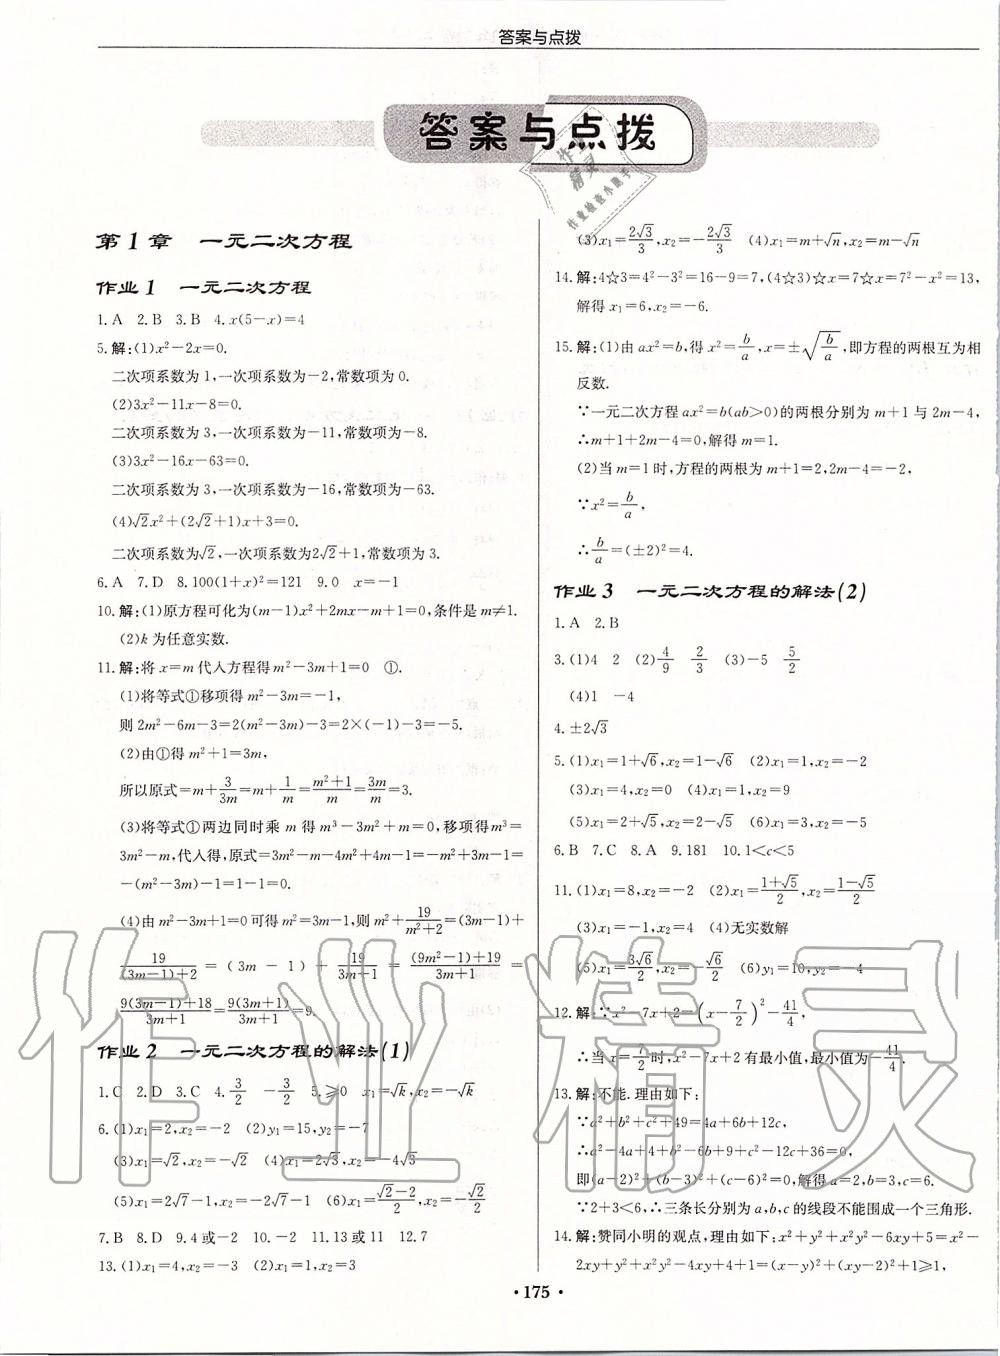 答案与点拨
答案与点拨
第1章 一元二次方程
作业1 一元二次方程
1.A 2.B 3.B 4.x(5-x)=4
5.解:(1)x²-2x=0.
二次项系数为1,一次项系数为-2,常数项为0.
(2)3x²-11x-8=0.
二次项系数为3,一次项系数为-11,常数项为-8.
(3)3x²-16x-63=0.
二次项系数为3,一次项系数为-16,常数项为-63.
(4)√2x²+(2√2+1)x+3=0.
二次项系数为√2,一次项系数为2√2+1,常数项为3.
6.A 7.D 8.100(1+x)²=121 9.0 x=-1
10.解:(1)原方程可化为(m-1)x²+2mx-m+1=0,条件是m≠1.
(2)k为任意实数.
11.解:将x=m代入方程得m²-3m+1=0 ①.
(1)将等式①移项得m²-3m=-1,
则2m²-6m-3=2(m²-3m)-3=2×(-1)-3=-5.
(2)由①得m²+1=3m,
所以原式=m+3/3m=m+1/m=(m²+1)/m=3m/m=3.
(3)将等式①两边同时乘m得m³-3m²+m=0,移项得m³=
3m²-m,代入得,原式=3m²-m-4m²+4m-1=-m²+3m-1=
-(m²-3m)-1=1-1=0.
(4)由m²-3m+1=0可得m²=3m-1,则m²+19/(m²+2)=(3m-1)+
19/((3m-1)+2)=(3m-1)+19/(3m+1)=((9m²-1)+19)/(3m+1)=
(9(3m-1)+18)/(3m+1)=9(3m+1)/(3m+1)=9.
作业2 一元二次方程的解法(1)
1.C 2.D 3.C 4.3/2 -3/2 5.≥0 x₁=√k,x₂=-√k
6.(1)x₁=2,x₂=-2 (2)y₁=15,y₂=-7
(3)x₁=√2,x₂=-√2 (4)x₁=2√3,x₂=-4√3
(5)x₁=2√7-1,x₂=-2√7-1 (6)x₁=(√2-2)/2,x₂=-√2/2
7.B 8.D 9.4或-2 10.-2 11.13或11 12.7
13.(1)x₁=4,x₂=-3 (2)x₁=x₂=3
(3)x₁=2√3/3,x₂=-2√3/3 (4)x₁=m+√n,x₂=m-√n
14.解:4☆3=4²-3²=16-9=7,(4☆3)☆x=7☆x=7²-x²=13,
解得x₁=6,x₂=-6.
15.解:(1)由ax²=b,得x²=b/a,x=±√(b/a),即方程的两根互为相
反数.
∵一元二次方程ax²=b(ab>0)的两根分别为m+1与2m-4,
∴m+1+2m-4=0,解得m=1.
(2)当m=1时,方程的两根为m+1=2,2m-4=-2,
∵x²=b/a,
∴b/a=(±2)²=4.
作业3 一元二次方程的解法(2)
1.A 2.B
3.(1)4 2 (2)4/9 2/3 (3)-5 5/2
(4)1 -4
4.±2√3
5.(1)x₁=1+√6,x₂=1-√6 (2)x₁=x₂=-2
(3)x₁=4,x₂=0 (4)x₁=1,x₂=9
(5)x₁=2+√5,x₂=2-√5 (6)x₁=3,x₂=-5
6.B 7.C 8.A 9.181 10.1<c<5
11.(1)x₁=8,x₂=-2 (2)x₁=(1+√5)/2,x₂=(1-√5)/2
(3)x₁=-1,x₂=4 (4)无实数解
(5)x₁=3√6/2,x₂=-√6/2 (6)y₁=10,y₂=-4
12.解:∵x²-7x+2=(x-7/2)²-41/4,
∴当x=7/2时,x²-7x+2有最小值,最小值为-41/4.
13.解:不能.理由如下:
∵a²+b²+c²+49=4a+6b+12c,
∴a²-4a+4+b²-6b+9+c²-12c+36=0,
即(a-2)²+(b-3)²+(c-6)²=0,解得a=2,b=3,c=6.
∵2+3<6,∴三条长分别为a,b,c的线段不能围成一个三角形.
14.解:赞同小明的观点,理由如下:x²+y²+x²y²-6xy+5=x²-
2xy+y²+x²y²-4xy+4+1=(x-y)²+(xy-2)²+1≥1,
·175·
作业精灵
作业精灵
作业检查小助手